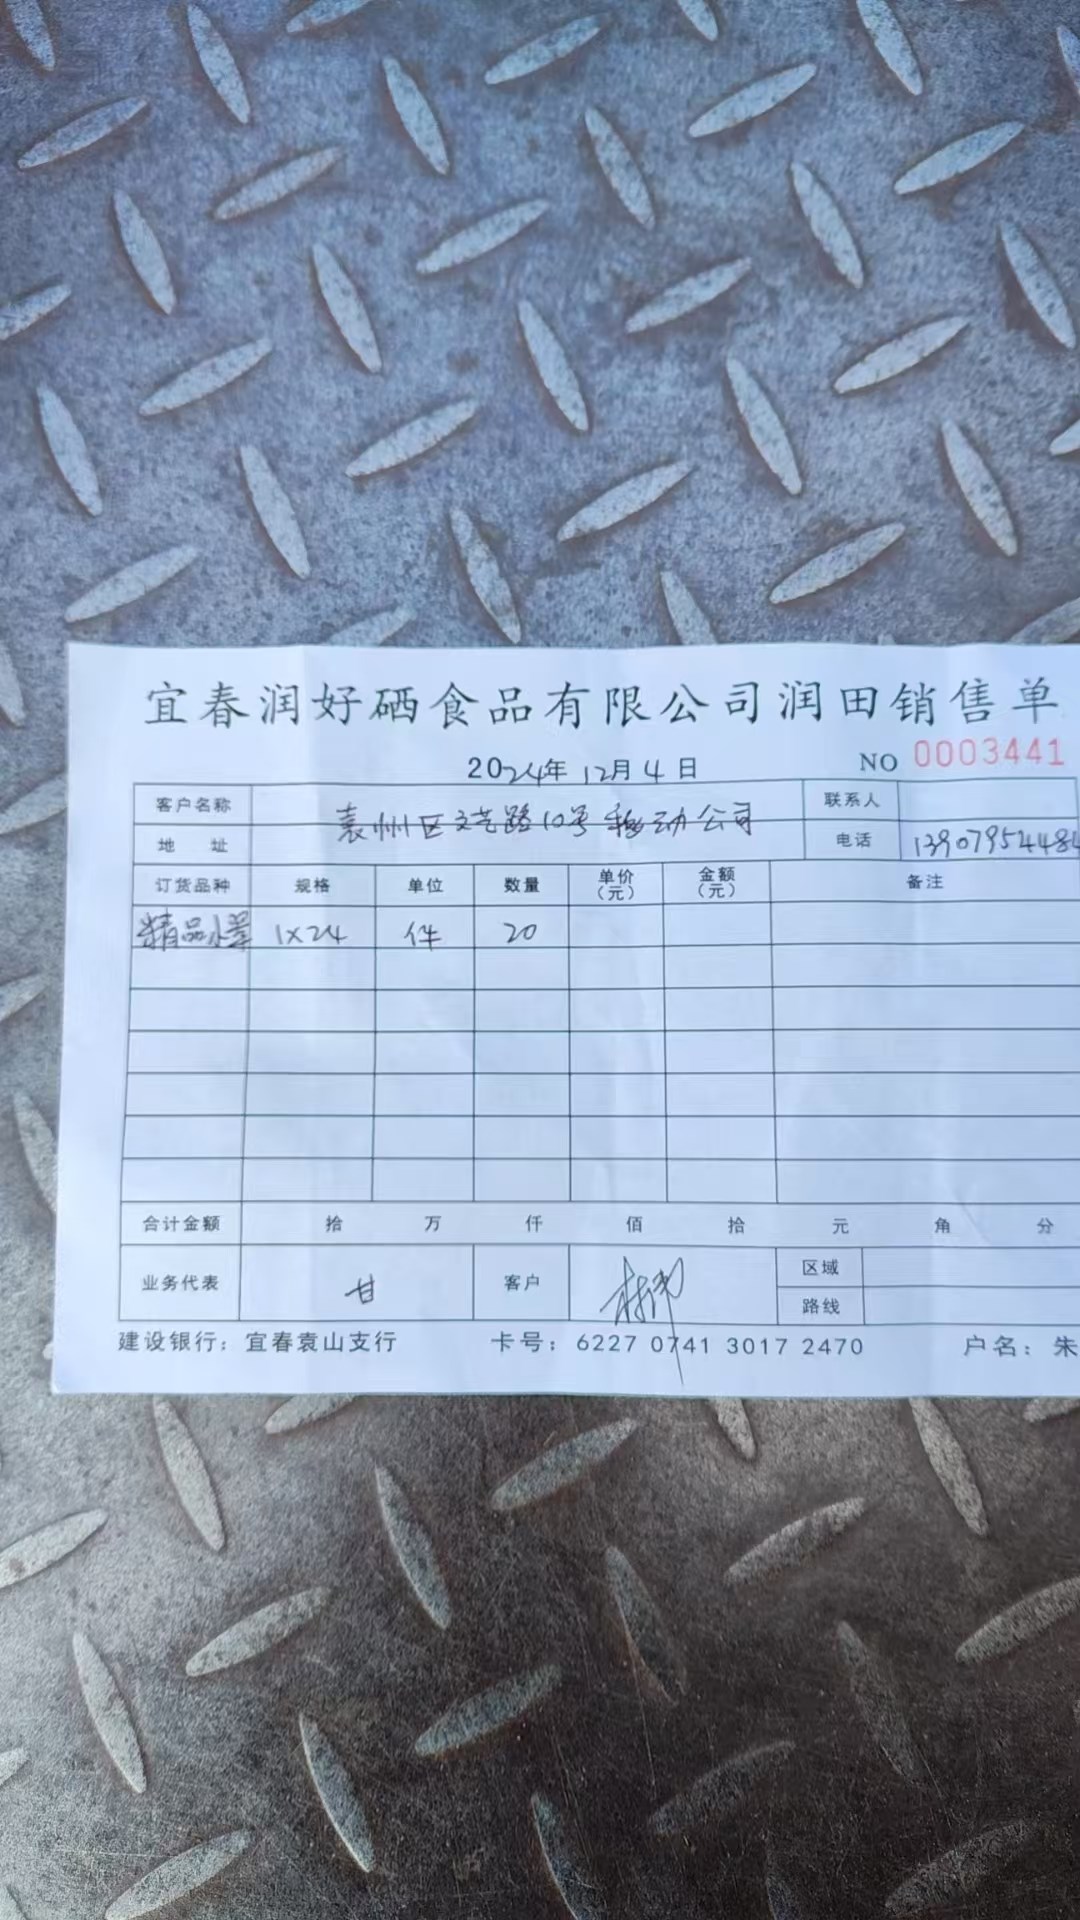 宜春润好硒食品有限公司润田销售单
2024年 12月 4 日 NO 0003441
客户名称 联系人
袁州区文艺路10号移动公司
地 址 电话 13907954484
订货品种 规格 单位 数量 单价(元) 金额(元) 备注
精品小 1X24 件 20
合计金额 拾 万 仟 佰 拾 元 角 分
业务代表 甘 客户 区域
路线
建设银行：宜春袁山支行 卡号：6227 0741 3017 2470 户名：朱